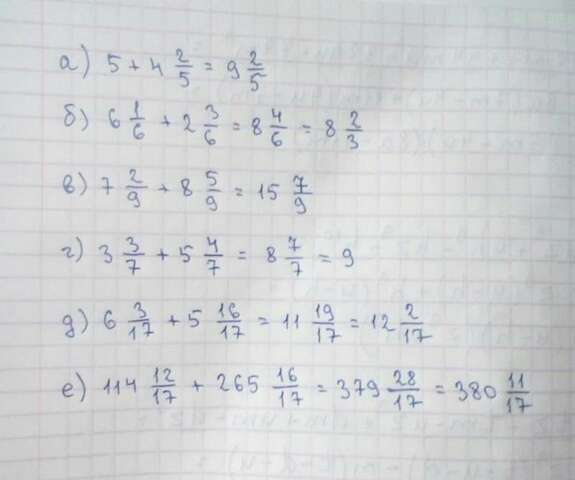 а) 5 + 4 2/5 = 9 2/5
б) 6 1/6 + 2 3/6 = 8 4/6 = 8 2/3
в) 7 2/9 + 8 5/9 = 15 7/9
г) 3 3/7 + 5 4/7 = 8 7/7 = 9
д) 6 3/17 + 5 16/17 = 11 19/17 = 12 2/17
е) 114 12/17 + 265 16/17 = 379 28/17 = 380 11/17